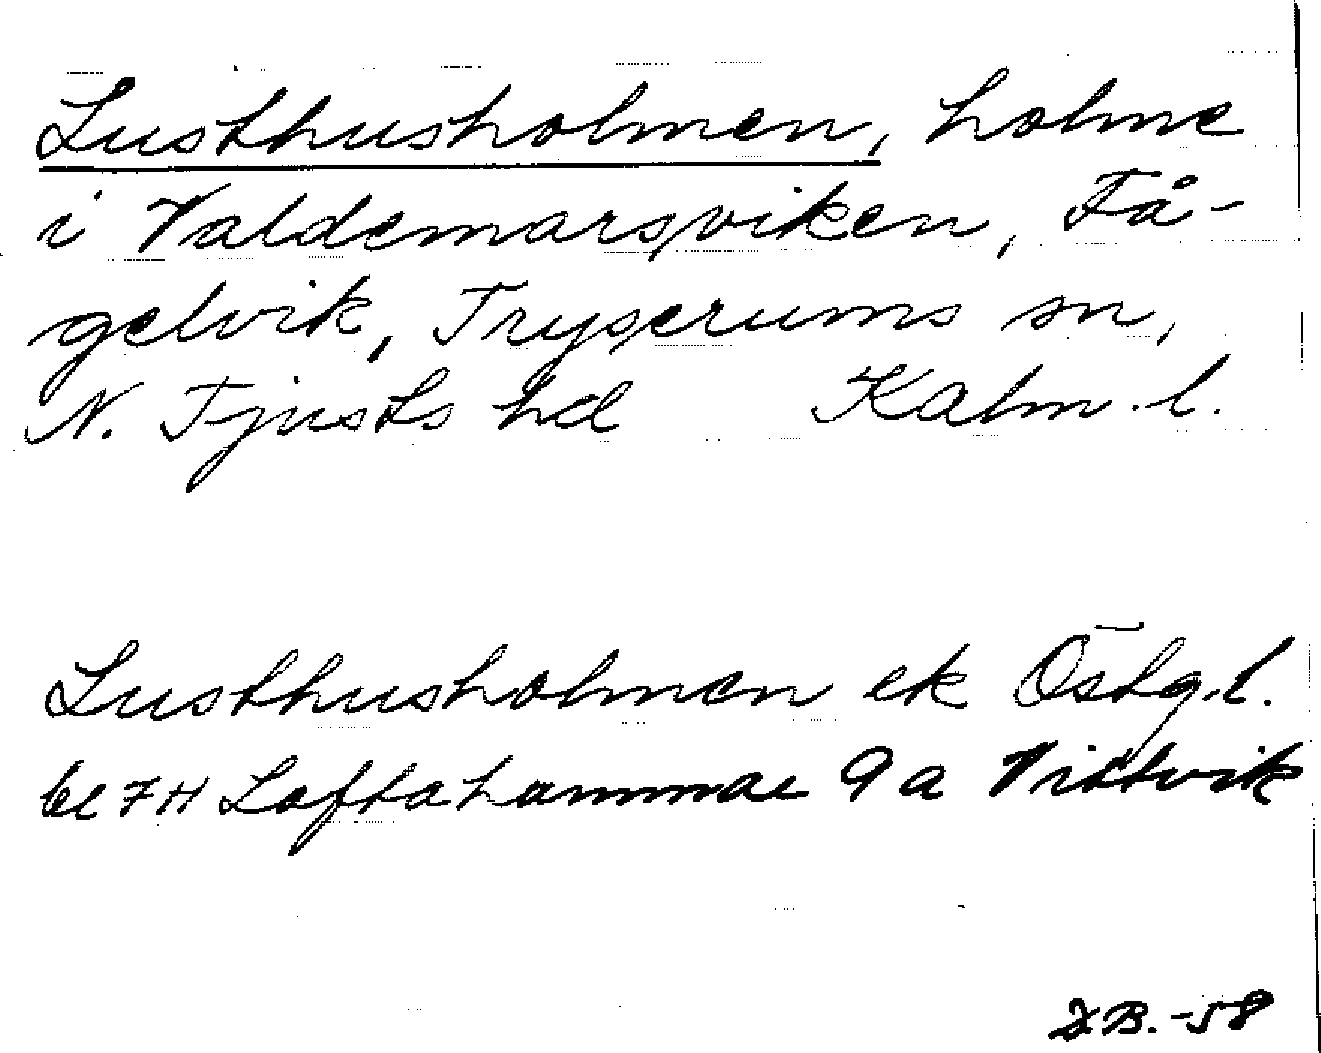 Lusthusholmen, holme
i Valdemarsviken, Få-
gelvik, Tryserums sn,
N. Tjusts hd Kalm. l.
Lusthusholmen ek Östg. l.
bl 7H Loftahammar 9a Vittvik
D.B. -58